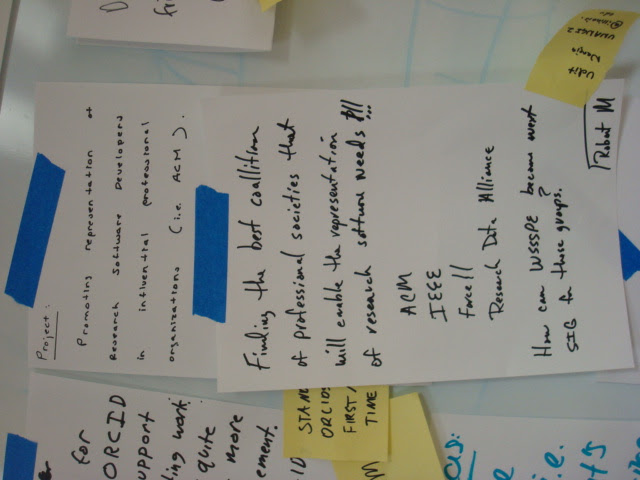 for
ORCID
support
work
quite
more
ement.
Project:
Promoting representation of
Research Software Developers
in influential professional
organizations (i.e. ACM).
Finding the best coalition
of professional societies that
will enable the representation
of research software needs !!!
ACM
IEEE
Force11
Research Data Alliance
How can WSSSPE become next
SIG for those groups?
Robert M
STAN
ORCIDS
FIRST /
TIME
M
as:
e
i.e.
t's
D
fri
Udit